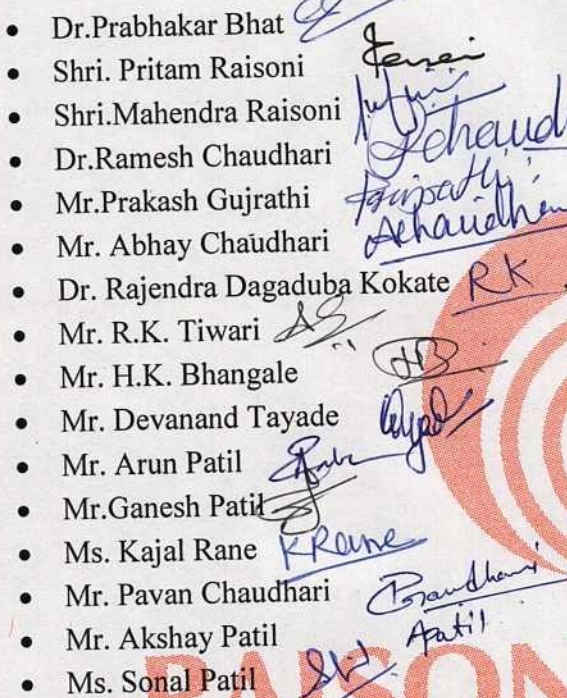 • Dr.Prabhakar Bhat
• Shri. Pritam Raisoni
• Shri.Mahendra Raisoni
• Dr.Ramesh Chaudhari
• Mr.Prakash Gujrathi
• Mr. Abhay Chaudhari Achaudhari
• Dr. Rajendra Dagaduba Kokate RK
• Mr. R.K. Tiwari
• Mr. H.K. Bhangale HB
• Mr. Devanand Tayade
• Mr. Arun Patil
• Mr.Ganesh Patil
• Ms. Kajal Rane KRane
• Mr. Pavan Chaudhari
• Mr. Akshay Patil Apatil
• Ms. Sonal Patil
RAISON